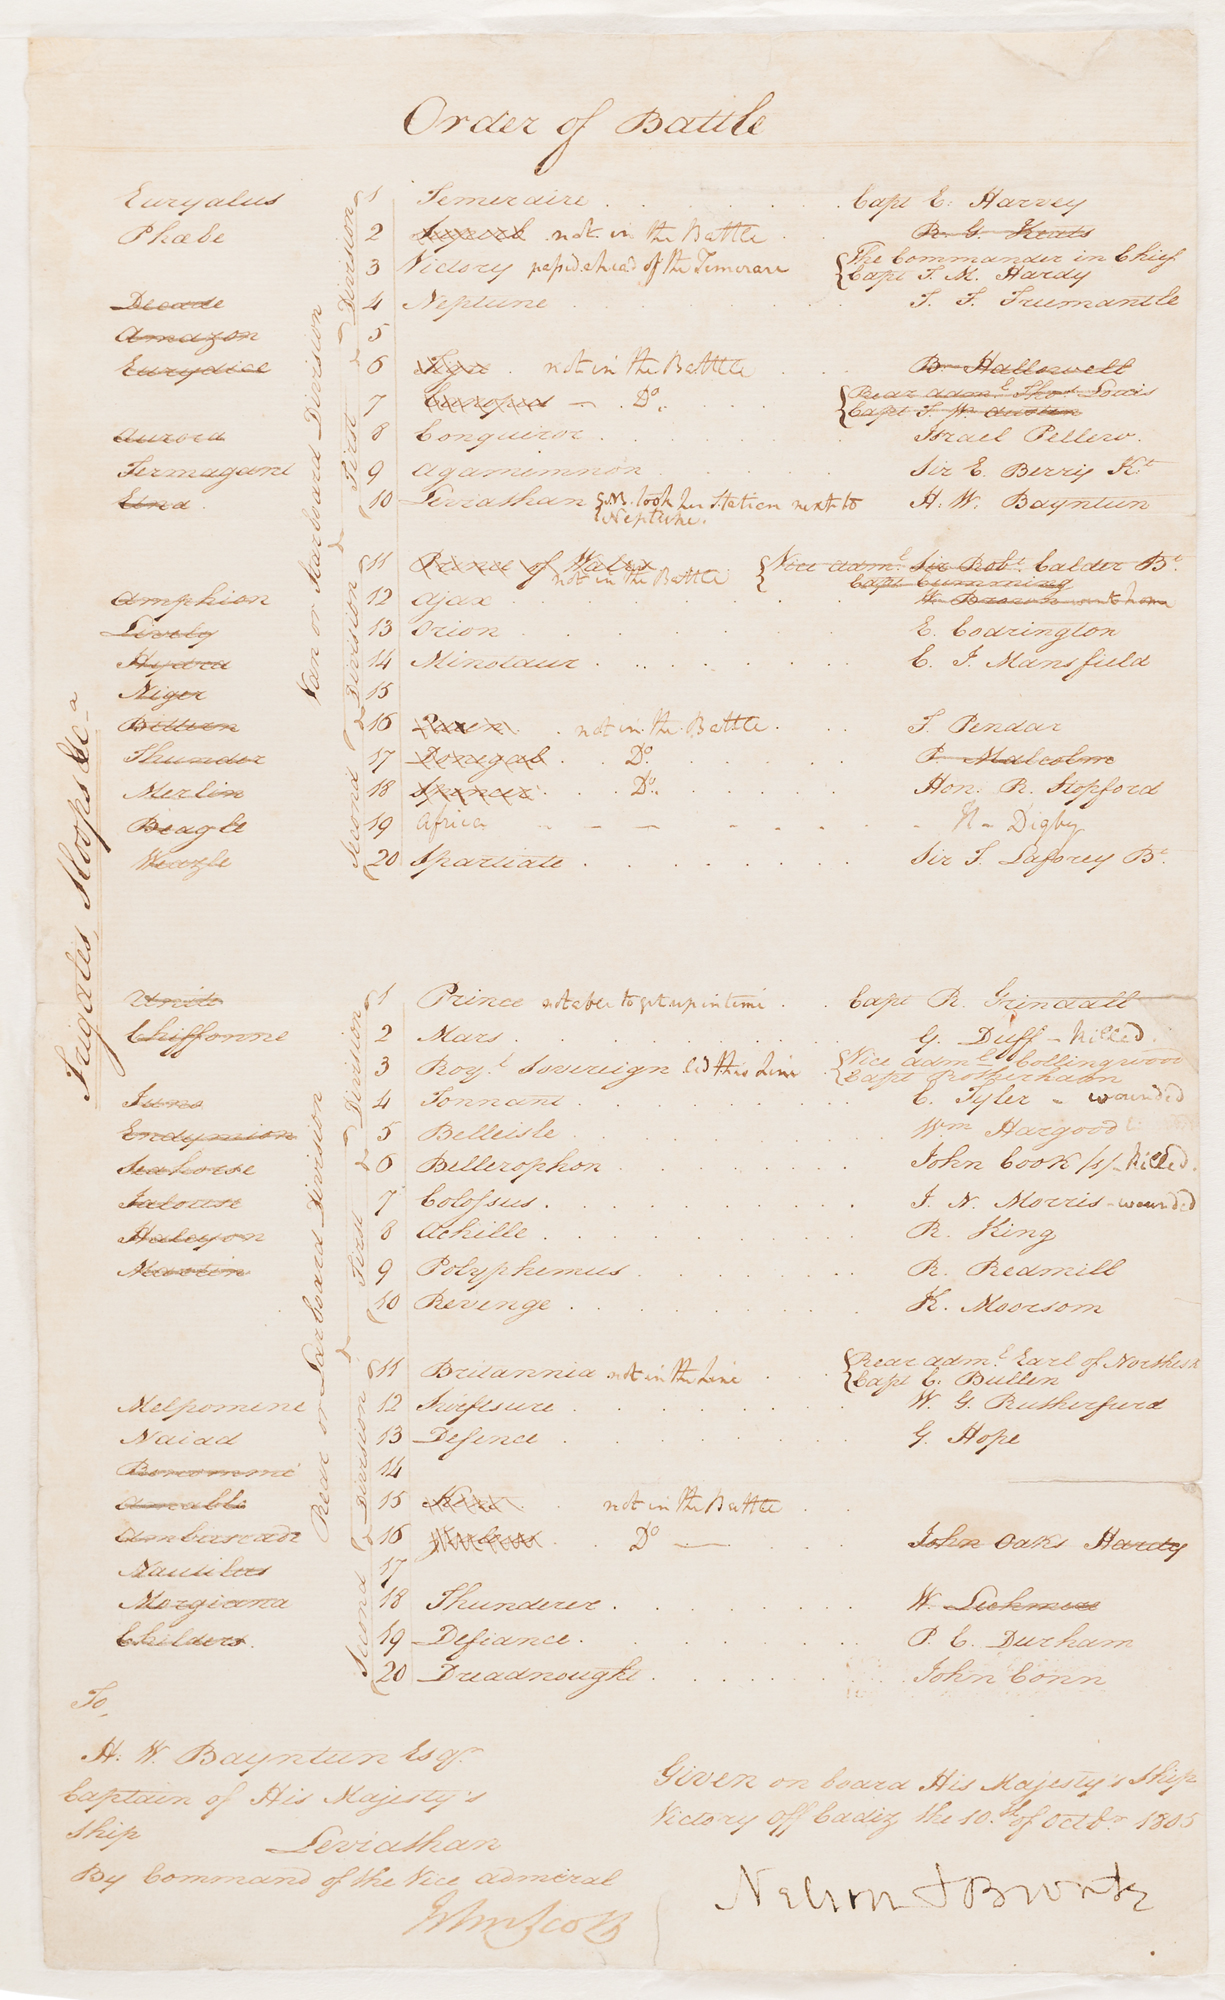 Order of Battle
Euryalus 1 Temeraire Capt E. Harvey
Phœbe 2 Superb not in the Battle R. G. Keats
3 Victory passed ahead of the Temerare The Commander in Chief
Capt T. M. Hardy
Decade 4 Neptune T. F. Fremantle
Amazon 5
Eurydice 6 Tigre not in the Battle B. Hallowell
7 Canopus Do. Rear Adml. Thos. Louis
Capt F. W. Austen
Aurora 8 Conqueror Israel Pellew.
Termagant 9 Agamemnon Sir E. Berry Kt
Etna 10 Leviathan took her station next to H. W. Bayntun
Neptune.
First Division
11 Prince of Wales Vice Adml. Sir Robt. Calder Bt.
not in the Battle Capt Cumming
Amphion 12 Ajax W. Brown
Lively 13 Orion E. Codrington
Hydra 14 Minotaur C. J. Mansfield
Niger 15
Bittern 16 Queen not in the Battle F. Pender
Thunder 17 Donegal Do. P. Malcolm
Merlin 18 Spencer Do. Hon. R. Stopford
Beagle 19 Africa H- Digby
Weazle 20 Spartiate Sir F. Laforey Bt.
Second Division
Van or Starboard Division
Frigates, Sloops &c.a
Unité 1 Prince not able to get up in time Capt R. Grindall
Chiffonne 2 Mars G. Duff - Killed.
3 Royl. Sovereign led this Line Vice Adml Collingwood
Capt Rotherham
Juno 4 Tonnant C. Tyler - wounded
Endymion 5 Belleisle Wm Hargood
Seahorse 6 Bellerophon John Cook /s/ - Killed.
Jalouse 7 Colossus J. N. Morris - wounded
Halcyon 8 Achille R. King
Martin 9 Polyphemus R. Redmill
10 Revenge R. Moorsom
First Division
11 Britannia not in the Line Rear Adml. Earl of Northesk
Capt C. Bullen
Melpomene 12 Swiftsure W. G. Rutherfurd
Naiad 13 Defence G. Hope
14
Amable 15 Kent not in the Battle
Ambuscade 16 Do John Oaks Hardy
Nautilus 17
Morgiana 18 Thunderer W. Lechmere
Childers. 19 Defiance P. C. Durham
20 Dreadnought John Conn
Second Division
Rear or Larboard Division
To,
H. W. Bayntun Esqr
Captain of His Majesty's
Ship Leviathan
By Command of the Vice Admiral
Given on board His Majesty's Ship
Victory off Cadiz the 10.th of Octbr. 1805
Nelson & Bronte